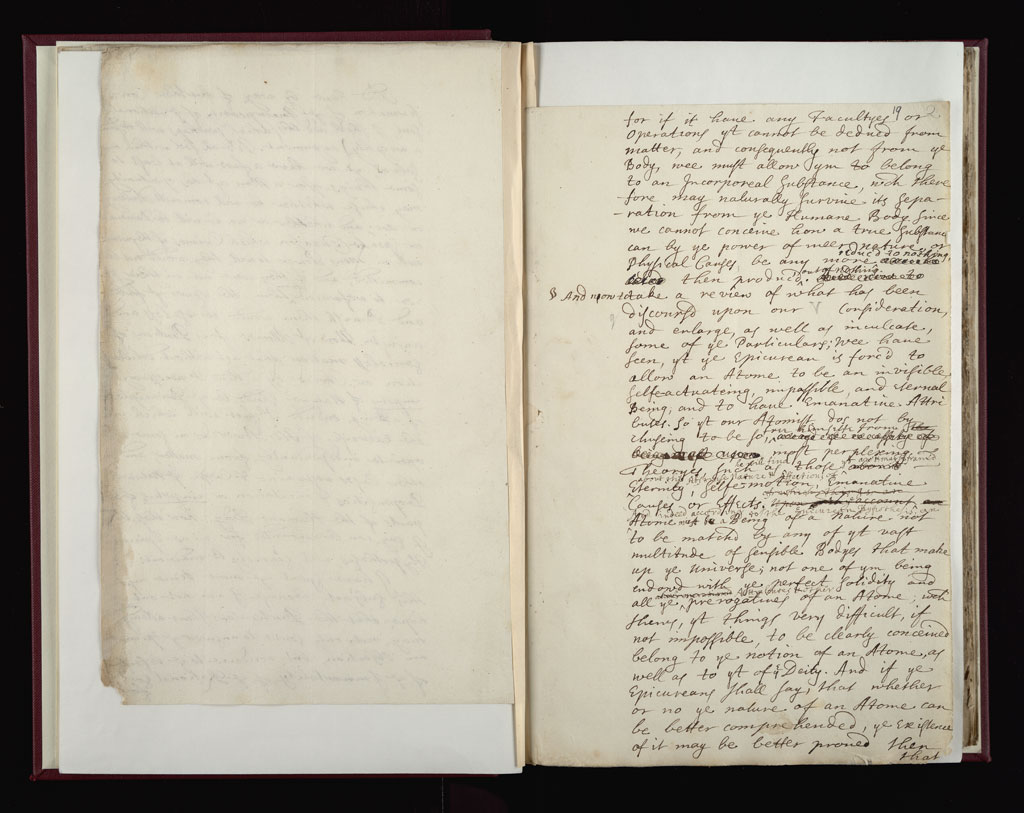 19
for if it have any Facultyes or
Operations yt cannot be deduc'd from
matter, and consequently not from ye
Body, wee must allow ym to belong
to an Incorporeal Substance, wch there
fore may naturally survive its sepa-
-ration from ye Humane Body. Since
we cannot conceive how a true Substance
can by ye power of meer nature, or
reduc'd to nothing,
Physical Causes, be any more
out of nothing.
then produc'd
§ And now to take a review of what has been
discours'd upon our Consideration,
and enlarge, as well as inculcate,
some of ye Particulars; Wee have
seen, yt ye Epicurean is forc'd to
allow an Atome to be an invisible
selfe-actuateing, impassible, and eternal
Being, and to have Emanative Attri
butes. So yt our Atomist dos not by
chusing to be so, free himself from
most perplexing
Theoryes, such as those about
Eternity, selfe-motion, Emanative
Causes or Effects.
And indeed according to the Epicurean Hypothesis an
Atome must be a Being of a Nature not
to be match'd by any of yt vast
multitude of sensible Bodyes that make
up ye Universe; not one of ym being
endow'd with ye perfect solidity and
all ye prerogatives of an Atome; wch
shews, yt things very difficult, if
not impossible, to be clearly conceived
belong to ye notion of an Atome, as
well as to yt of ye Deity. And if ye
Epicureans shall say, that whether
or no ye nature of an Atome can
be better comprehended, ye Existence
of it may be better proved then
that